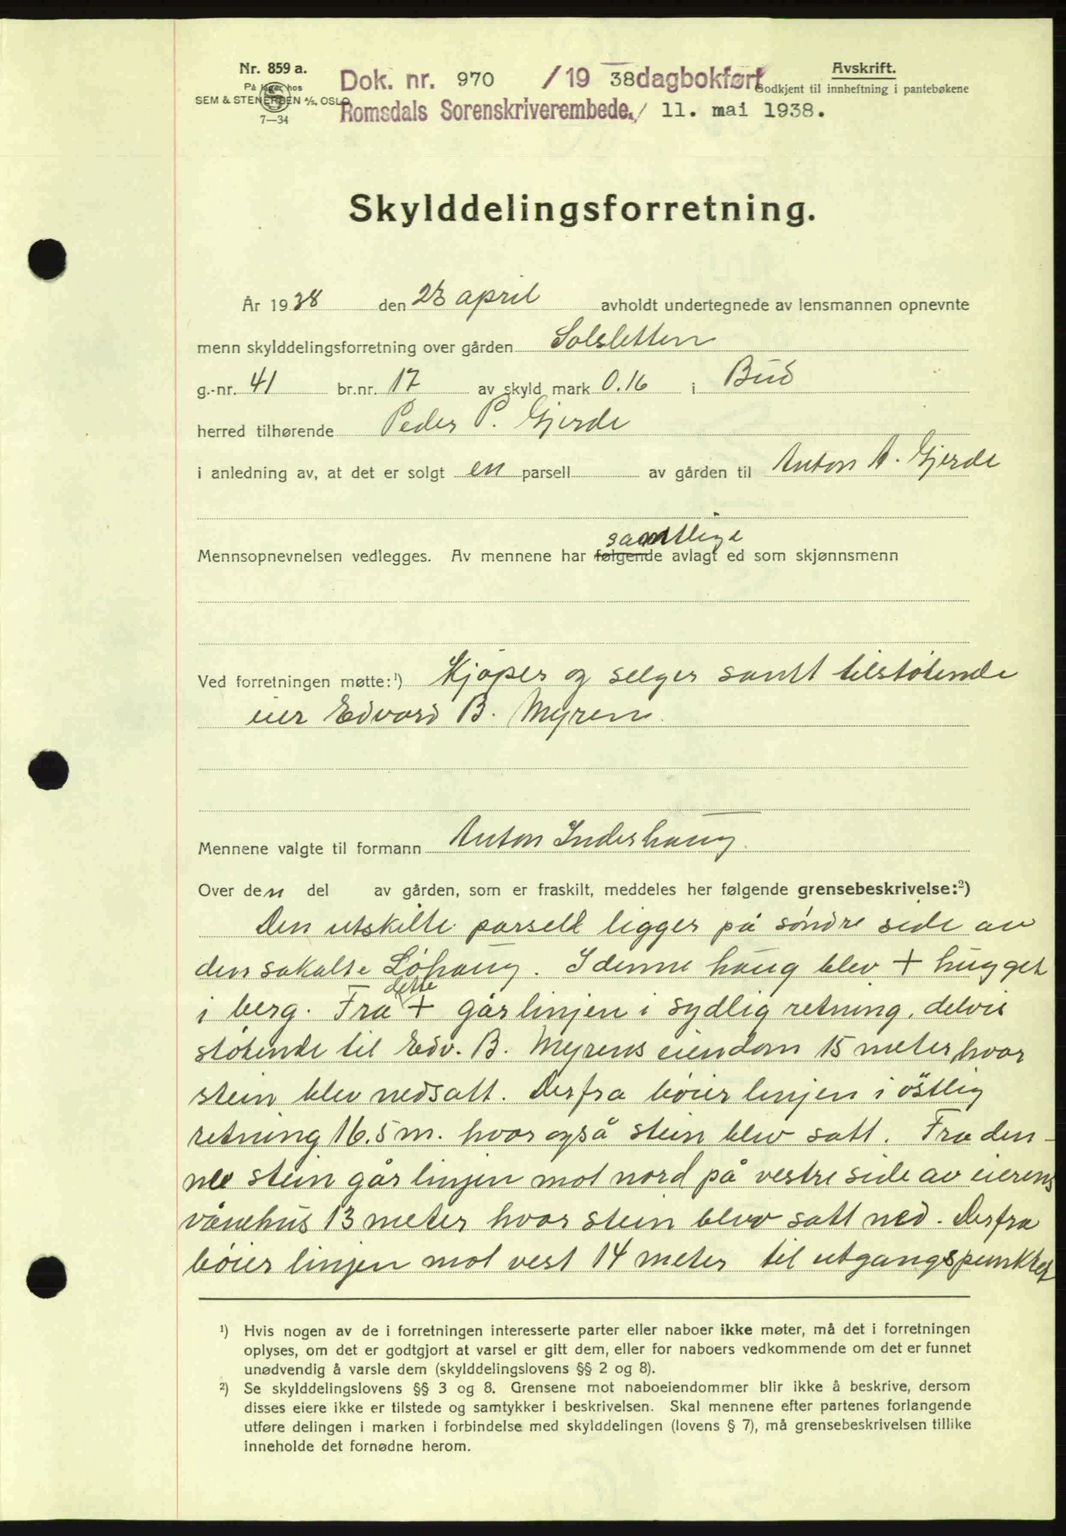 Nr. 859 a.
På lager hos
SEM & STENERSEN A/S, OSLO
7—34
Dok. nr. 970 /19 38 dagbokført
Romsdals Sorenskriverembede, / 11. mai 1938.
Avskrift.
Godkjent til innheftning i pantebøkene
Skylddelingsforretning.
År 1938 den 23 april avholdt undertegnede av lensmannen opnevnte
menn skylddelingsforretning over gården Solsletten
g.-nr. 41 br.nr. 17 av skyld mark 0.16 i Bud
herred tilhørende Peder P. Gjerde
i anledning av, at det er solgt en parsell av gården til Anton A. Gjerde
samtlige
Mennsopnevnelsen vedlegges. Av mennene har følgende avlagt ed som skjønnsmenn
Ved forretningen møtte:¹) Kjøper og selger samt tilstøtende
eier Edvard B. Myren.
Mennene valgte til formann Anton Inderhaug.
Over den del av gården, som er fraskilt, meddeles her følgende grensebeskrivelse:²)
Den utskilte parsell ligger på søndre side av
den sakalte Løhaug. I denne haug blev + hugget
i berg. Fra dette + går linjen i sydlig retning, delvis
støtende til Edv. B. Myrens eiendom 15 meter, hvor
stein blev nedsatt. Derfra bøier linjen i östlig
retning 16.5 m. hvor også stein blev satt. Fra den-
ne stein går linjen mot nord på vestre side av eierens
vånehus 13 meter hvor stein blev satt ned. Derfra
bøier linjen mot vest 14 meter til utgangspunktet
¹) Hvis nogen av de i forretningen interesserte parter eller naboer ikke møter, må det i forretningen
oplyses, om det er godtgjort at varsel er gitt dem, eller for naboers vedkommende om det er funnet
unødvendig å varsle dem (skylddelingslovens §§ 2 og 8).
²) Se skylddelingslovens §§ 3 og 8. Grensene mot naboeiendommer blir ikke å beskrive, dersom
disses eiere ikke er tilstede og samtykker i beskrivelsen. Skal mennene efter partenes forlangende
utføre delingen i marken i forbindelse med skylddelingen (lovens § 7), må grensebeskrivelsen tillike
inneholde det fornødne herom.